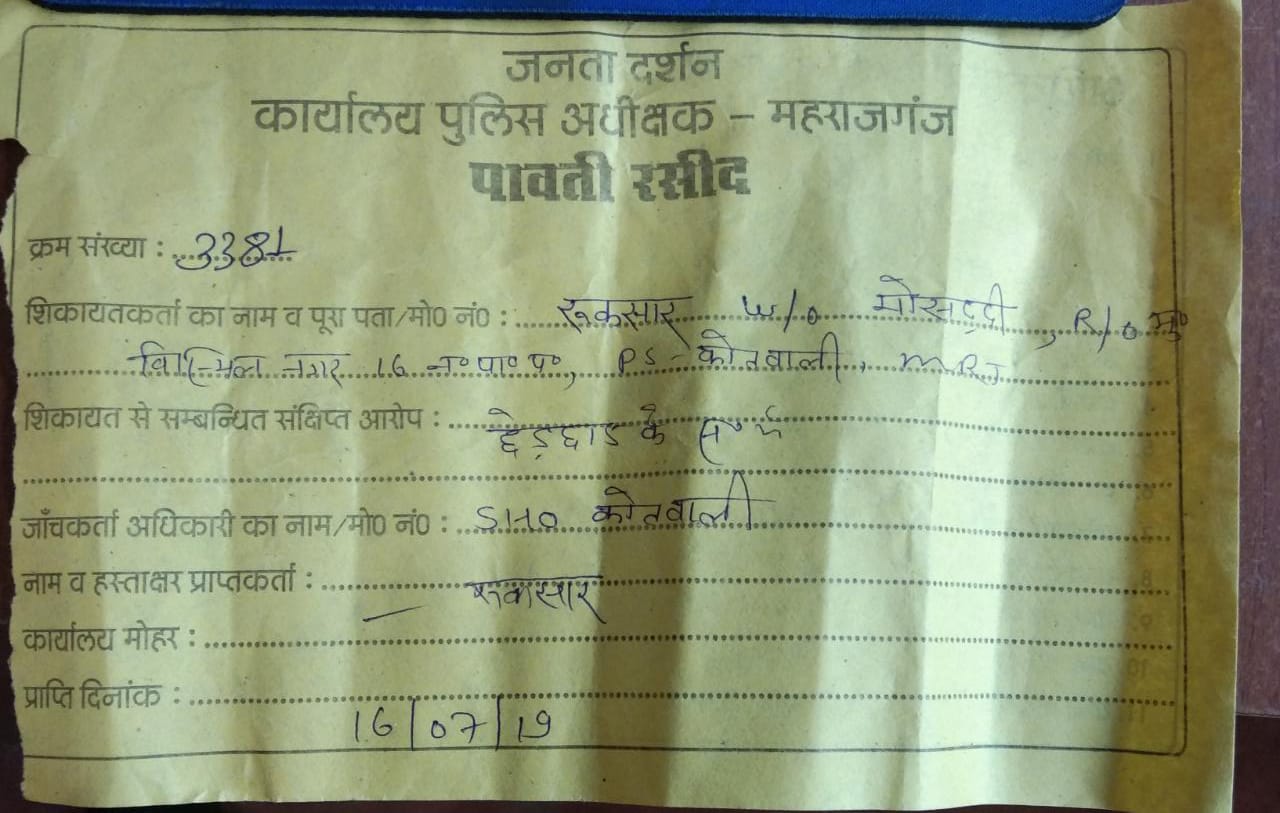 जनता दर्शन
कार्यालय पुलिस अधीक्षक – महराजगंज
पावती रसीद
क्रम संख्या : 3381
शिकायतकर्ता का नाम व पूरा पता/मो0 नं0 : रूकसार w/o मोसद्दी, R/o मु०
विस्मिल नगर 16 न० पा० प०, PS - कोतवाली, MRJ
शिकायत से सम्बन्धित संक्षिप्त आरोप : छेड़छाड के
जाँचकर्ता अधिकारी का नाम/मो0 नं0 : SHO कोतवाली
नाम व हस्ताक्षर प्राप्तकर्ता : रूकसार
कार्यालय मोहर :
प्राप्ति दिनांक :
16/07/19